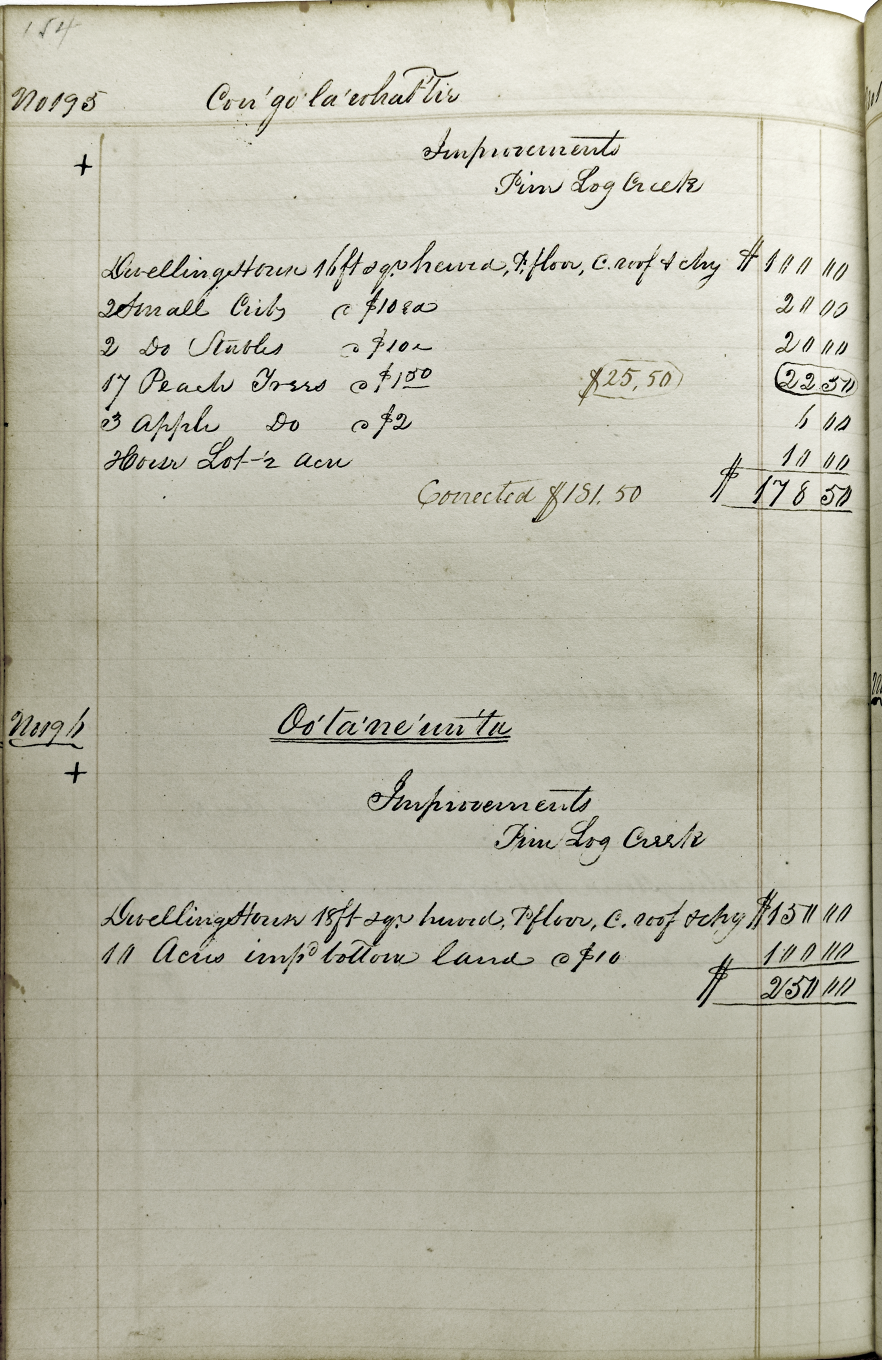 154
No 195 Con'go'la'what'tie
+
Improvements
Pine Log Creek
Dwelling House 16 ft sqr hewed, P. floor, C. roof & chy $100 00
2 Small Cribs @ $10 ea 20 00
2 Do Stables @ $10 " 20 00
17 Peach Trees @ $1 50 $25,50 22 50
3 Apple Do @ $2 6 00
House Lot - 2 Acre 10 00
Corrected $181.50 $178 50
No 196 Oo'ta'ne'un'ta
+
Improvements
Pine Log Creek
Dwelling House 18 ft sqr hewed, P. floor, C. roof & chy $150 00
10 Acres impd bottom land @ $10 100 00
$250 00